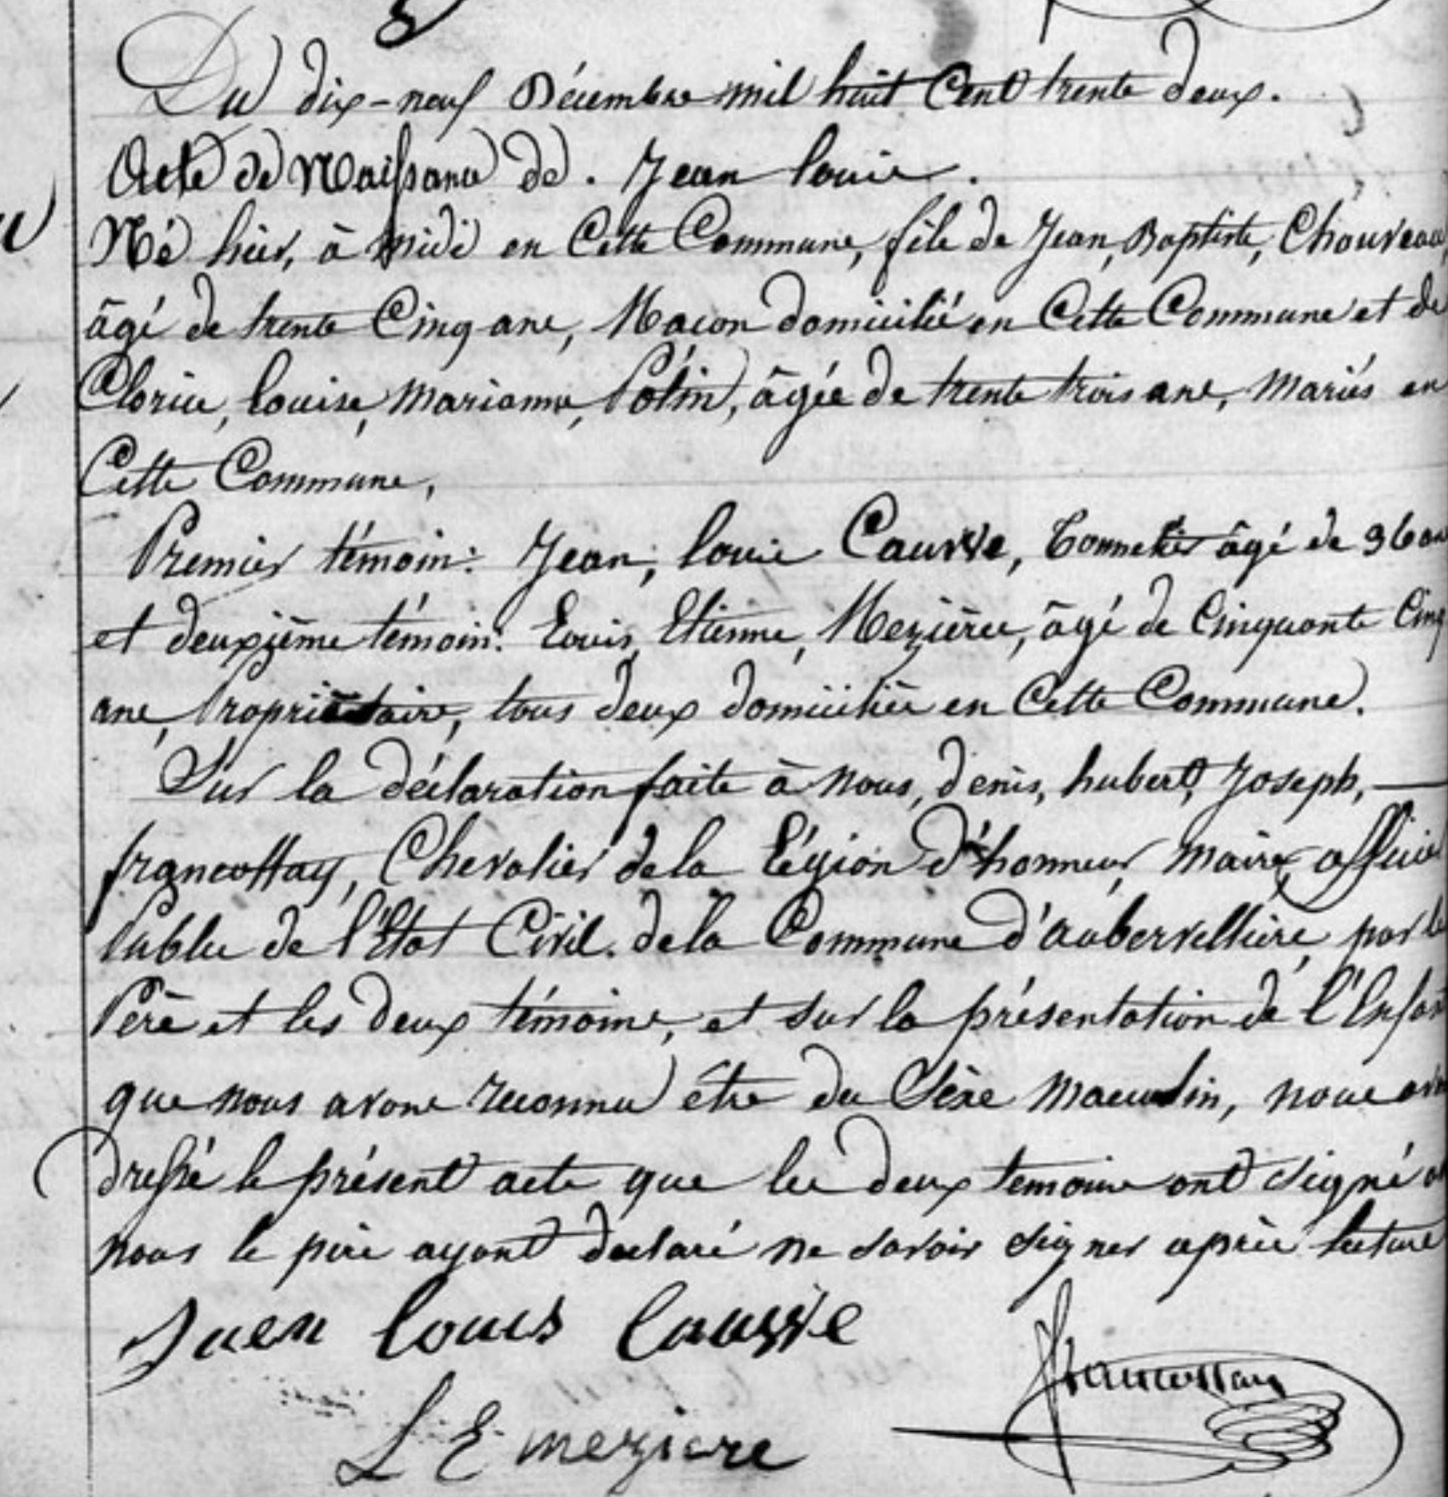 Du dix-neuf Décembre mil huit Cent trente deux.
Acte de Naissance de. Jean louis.
Né hier, à midi en Cette Commune, fils de Jean, Baptiste, Chouveau,
âgé de trente Cinq ans, Macon domicilié en Cette Commune et de
Clorice, louise, marianne, Potin, âgée de trente trois ans, Mariés en
Cette Commune,
Premier témoin: Jean, louis Causse, Tonnelier âgé de 36 ans
et deuxième témoin: Louis, Etienne, Mezières, âgé de Cinquante Cinq
ans, Propriétaire, tous deux domiciliés en Cette Commune.
Sur la déclaration faite à nous, denis, hubert, Joseph,
francottay, Chevalier de la Légion d'honneur, maire, officier
Public de l'État Civil. de la Commune d'aubervilliers, par le
Père et les deux témoins, et sur la présentation de l'Enfant
que nous avons reconnu être du Sèxe masculin, nous avons
dressé le présent acte que les deux temoins ont signé
nous le père ayant declaré ne savoir signer après lecture
Juen louis Causse
L E meziere
francottay